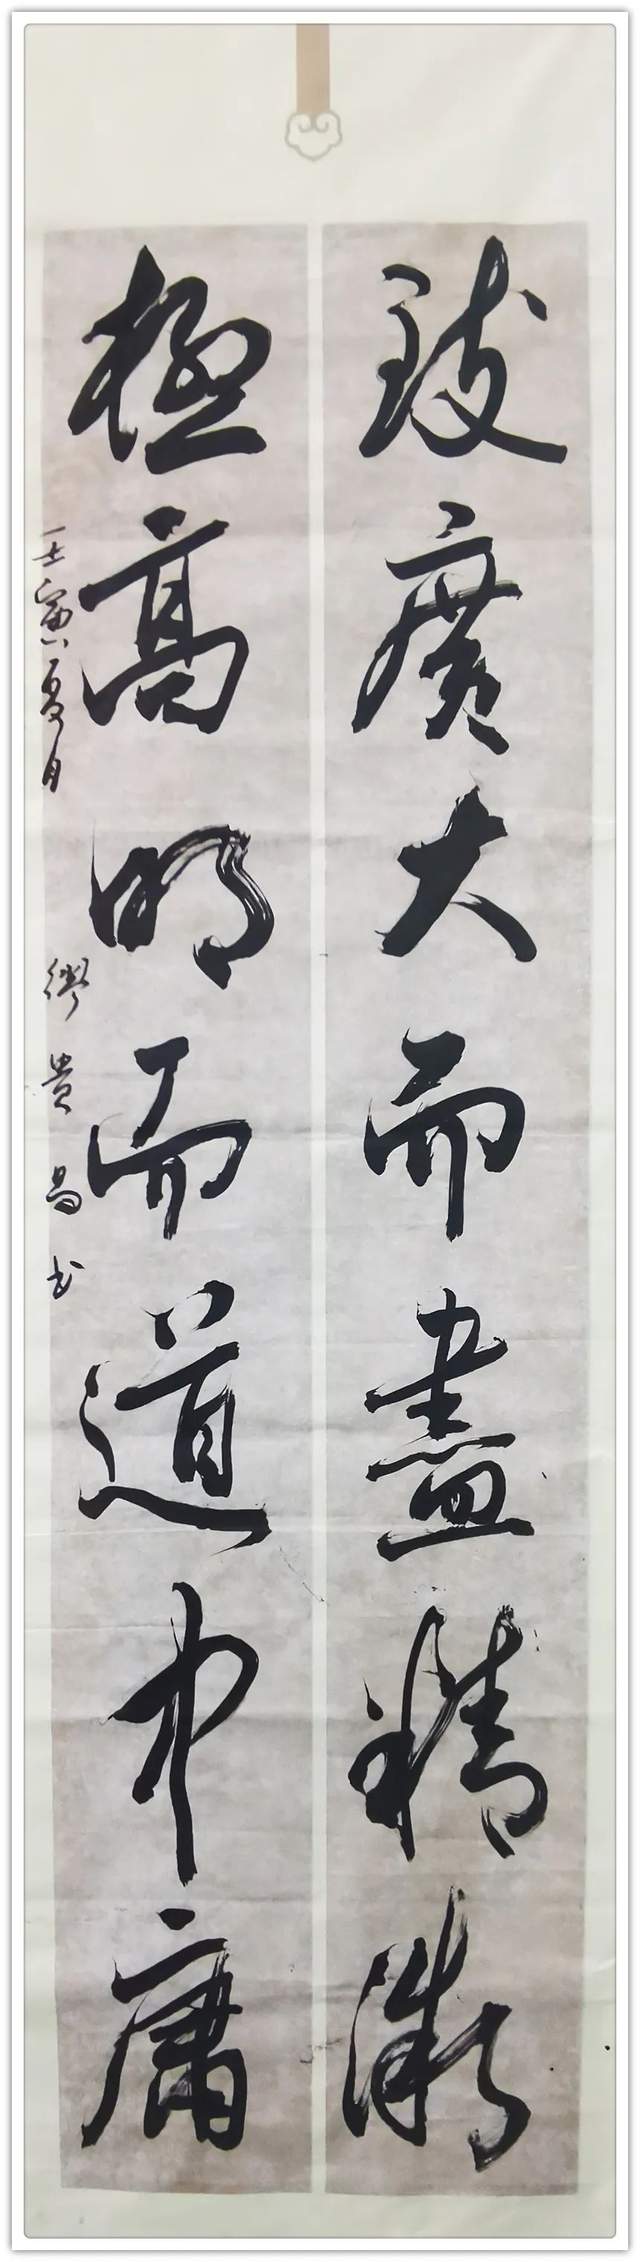 致廣大而盡精微
極高明而道中庸
壬寅夏月 貴昌书